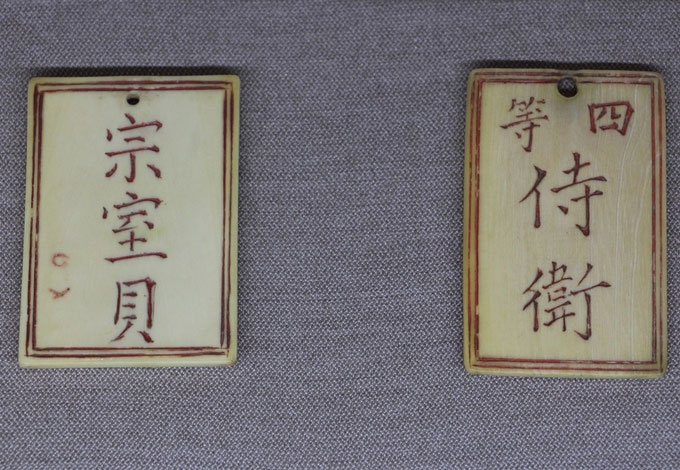 宗室貝
四等
侍衛